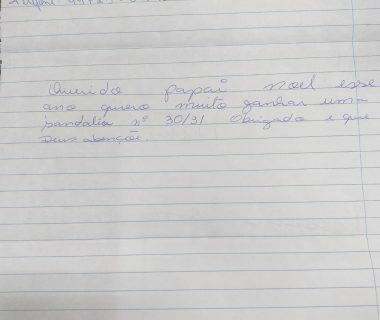 Querido papai noel esse
ano quero muito ganhar uma
sandalia nº 30/31 Obrigada e que
Deus abençõe.